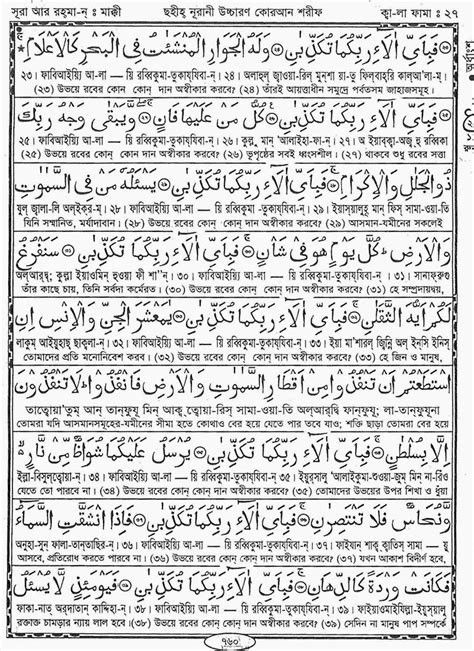 সূরা আর রহমা-ন্ : মাক্কী ছহীহ্ নূরানী উচ্চারণ কোরআন শরীফ ক্বা-লা ফামা : ২৭
فَبِاَىِّ اٰلَآءِ رَبِّكُمَا تُكَذِّبٰنِ ۝ وَلَهُ الْجَوَارِ الْمُنْشَئٰتُ فِى الْبَحْرِ كَالْاَعْلَامِ
২৩। ফাবিআইয়্যি আ-লা — য়ি রব্বিকুমা-তুকাযযিবা-ন্। ২৪। অলাহুল্ জ্বাওয়া-রিল্ মুন্শা য়া-তু ফিল্বাহ্রি কাল্আ'লা-ম্।
(২৩) উভয়ে রবের কোন্ কোন্ দান অস্বীকার করবে? (২৪) তাঁরই আয়ত্তাধীন সমুদ্রে পর্বতসম জাহাজসমূহ।
فَبِاَىِّ اٰلَآءِ رَبِّكُمَا تُكَذِّبٰنِ ۝ كُلُّ مَنْ عَلَيْهَا فَانٍ ۝ وَّيَبْقٰى وَجْهُ رَبِّكَ
২৫। ফাবিআইয়্যি আ-লা — য়ি রব্বিকুমা-তুকাযযিবা-ন্। ২৬। কুল্লু মান্ 'আলাইহা-ফা-ন্। ২৭। অ ইয়াবক্বা-অজ্হু রব্বিকা
(২৫) উভয়ে রবের কোন্ কোন্ দান অস্বীকার করবে? (২৬) ভূপৃষ্ঠের সবই ধ্বংসশীল। (২৭) থাকবে শুধু রবের সত্তা
ذُو الْجَلٰلِ وَالْاِكْرَامِ ۝ فَبِاَىِّ اٰلَآءِ رَبِّكُمَا تُكَذِّبٰنِ ۝ يَسْئَلُهٗ مَنْ فِى السَّمٰوٰتِ
যুল্ জ্বালা-লি অল্ইকর-ম্। ২৮। ফাবিআইয়্যি আ-লা — য়ি রব্বিকুমা-তুকাযযিবা-ন্। ২৯। ইয়াস্য়ালুহূ মান্ ফিস্ সামা-ওয়া-তি
যিনি সম্মানিত, মর্যাদাবান। (২৮) উভয়ে রবের কোন্ কোন্ দান অস্বীকার করবে? (২৯) আসমান-যমীনের সকলেই
وَالْاَرْضِ ۭ كُلَّ يَوْمٍ هُوَ فِىْ شَاْنٍ ۝ فَبِاَىِّ اٰلَآءِ رَبِّكُمَا تُكَذِّبٰنِ ۝ سَنَفْرُغُ
অল্আরদ্ব্; কুল্লা ইয়াওমিন্ হুওয়া ফী শা''ন্। ৩০। ফাবিআইয়্যি আ-লা — য়ি রব্বিকুমা-তুকাযযিবা-ন্। ৩১। সানাফ্রুগু
তাঁর কাছে চায়, তিনি সর্বদা কর্মেরত। (৩০) উভয়ে রবের কোন্ কোন্ দান অস্বীকার করবে? (৩১) হে সম্প্রদায়দ্বয়,
لَكُمْ اَيُّهَ الثَّقَلٰنِ ۝ فَبِاَىِّ اٰلَآءِ رَبِّكُمَا تُكَذِّبٰنِ ۝ يٰمَعْشَرَ الْجِنِّ وَالْاِنْسِ اِنِ
লাকুম্ আইয়ুহাছ্ ছাক্বলা-ন্। ৩২। ফাবিআইয়্যি আ-লা — য়ি রব্বিকুমা-তুকাযযিবা-ন্। ৩৩। ইয়া মা'শারল্ জ্বিন্নি অল্ ইন্সি ইনিস্
তোমাদের প্রতি মনোনিবেশ করব। (৩২) উভয়ে রবের কোন্ কোন্ দান অস্বীকার করবে? (৩৩) হে জিন ও মানুষ,
اسْتَطَعْتُمْ اَنْ تَنْفُذُوْا مِنْ اَقْطَارِ السَّمٰوٰتِ وَالْاَرْضِ فَانْفُذُوْا ۭ لَا تَنْفُذُوْنَ
তাত্বোয়া'তুম্ আন্ তান্ফুযূ মিন্ আক্ব ত্বোয়া-রিস্ সামা-ওয়া-তি অল্আরদ্বি ফান্ফুযূ; লা-তান্ফুযূনা
তোমরা যদি আসমানসমূহের-যমীনের সীমা হতে কোথাও বের হয়ে যেতে পার তবে যাও; শক্তি ছাড়া তোমরা বের হয়ে
اِلَّا بِسُلْطٰنٍ ۝ فَبِاَىِّ اٰلَآءِ رَبِّكُمَا تُكَذِّبٰنِ ۝ يُرْسَلُ عَلَيْكُمَا شُوَاظٌ مِّنْ نَّارٍ
ইল্লা-বিসুল্ত্বোয়া-ন্। ৩৪। ফাবিআইয়্যি আ-লা — য়ি রব্বিকুমা-তুকাযযিবা-ন্। ৩৫। ইয়ুর্সালু 'আলাইকুমা-শুওয়া-জুম্ মিন্ না-রিঁও
যেতে পারবে না। (৩৪) উভয়ে রবের কোন্ কোন্ দান অস্বীকার করবে? (৩৫) তোমাদের উভয়ের উপর শিখা ও ধুঁয়া
وَّنُحَاسٌ فَلَا تَنْتَصِرٰنِ ۝ فَبِاَىِّ اٰلَآءِ رَبِّكُمَا تُكَذِّبٰنِ ۝ فَاِذَا انْشَقَّتِ السَّمَآءُ
অনুহা-সুন্ ফালা-তান্তাছির-ন্। ৩৬। ফাবিআইয়্যি আ-লা — য়ি রব্বিকুমা-তুকাযযিবা-ন্। ৩৭। ফাইযান্ শাক্ব ক্বাতিস্ সামা — য়ু
আসবে, প্রতিরোধ করতে পারবে না। (৩৬) উভয়ে রবের কোন্ কোন্ দান অস্বীকার করবে? (৩৭) যখন আকাশ বিদীর্ণ হবে,
فَكَانَتْ وَرْدَةً كَالدِّهَانِ ۝ فَبِاَىِّ اٰلَآءِ رَبِّكُمَا تُكَذِّبٰنِ ۝ فَيَوْمَئِذٍ لَّا يُسْئَلُ
ফাকা-নাত্ অর্দাতান্ কাদ্দিহা-ন্। ৩৮। ফাবিআইয়্যি আ-লা — য়ি রব্বিকুমা-তুকাযযিবা-ন্। ৩৯। ফাইয়াওমাইযিল্লা-ইয়ুস্য়ালু
রক্তে রঞ্জিত চামড়ার মত লাল হবে (৩৮) উভয়ে রবের কোন্ কোন্ দান অস্বীকার করবে? (৩৯) সেদিন না মানুষ পাপ সম্পর্কে
৭৬০